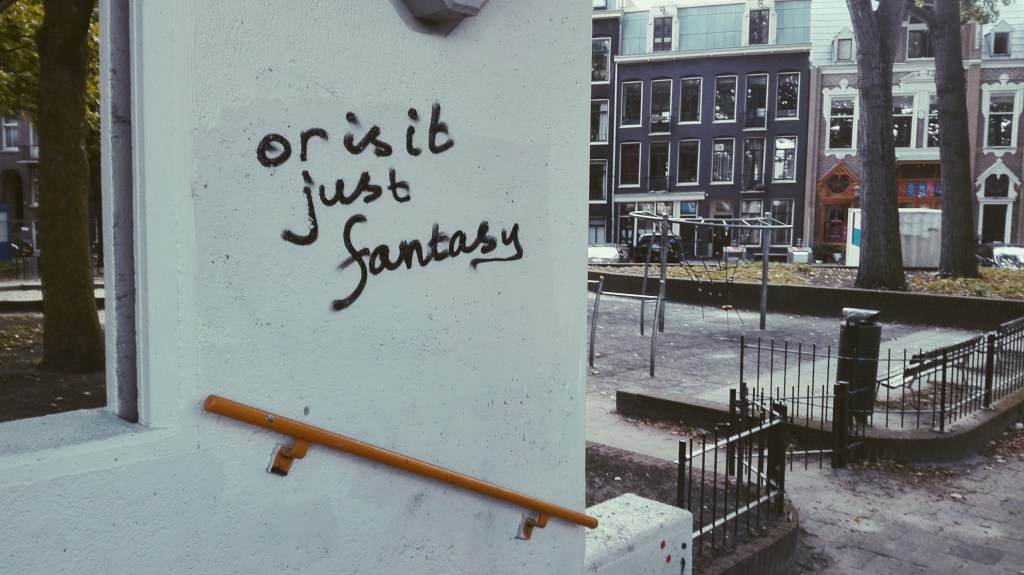 or is it
just
fantasy